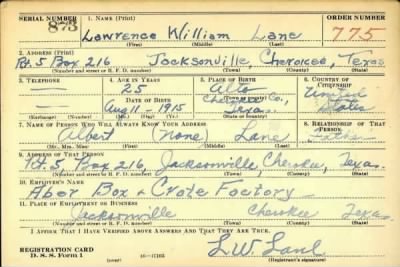 SERIAL NUMBER 1. NAME (Print) ORDER NUMBER
873 Lawrence William Lane 775
(First) (Middle) (Last)
2. ADDRESS (Print)
Rt. 5 Box 216 Jacksonville, Cherokee, Texas
(Number and street or R. F. D. number) (Town) (County) (State)
3. TELEPHONE 4. AGE IN YEARS 5. PLACE OF BIRTH 6. COUNTRY OF CITIZENSHIP
— 25 Alto United
DATE OF BIRTH Cherokee Co., States
— Aug 11-1915 Texas
(Exchange) (Number) (Mo.) (Day) (Yr.) (State or country)
7. NAME OF PERSON WHO WILL ALWAYS KNOW YOUR ADDRESS 8. RELATIONSHIP OF THAT PERSON
Albert (none) Lane Father
(Mr., Mrs., Miss) (First) (Middle) (Last)
9. ADDRESS OF THAT PERSON
Rt. 5 Box 216, Jacksonville, Cherokee, Texas.
(Number and street or R. F. D. number) (Town) (County) (State)
10. EMPLOYER'S NAME
Aber Box & Crate Factory
11. PLACE OF EMPLOYMENT OR BUSINESS
Jacksonville Cherokee Texas
(Number and street or R. F. D. number) (Town) (County) (State)
I AFFIRM THAT I HAVE VERIFIED ABOVE ANSWERS AND THAT THEY ARE TRUE.
REGISTRATION CARD L. W. Lane
D. S. S. Form 1 (over) (Registrant's signature)